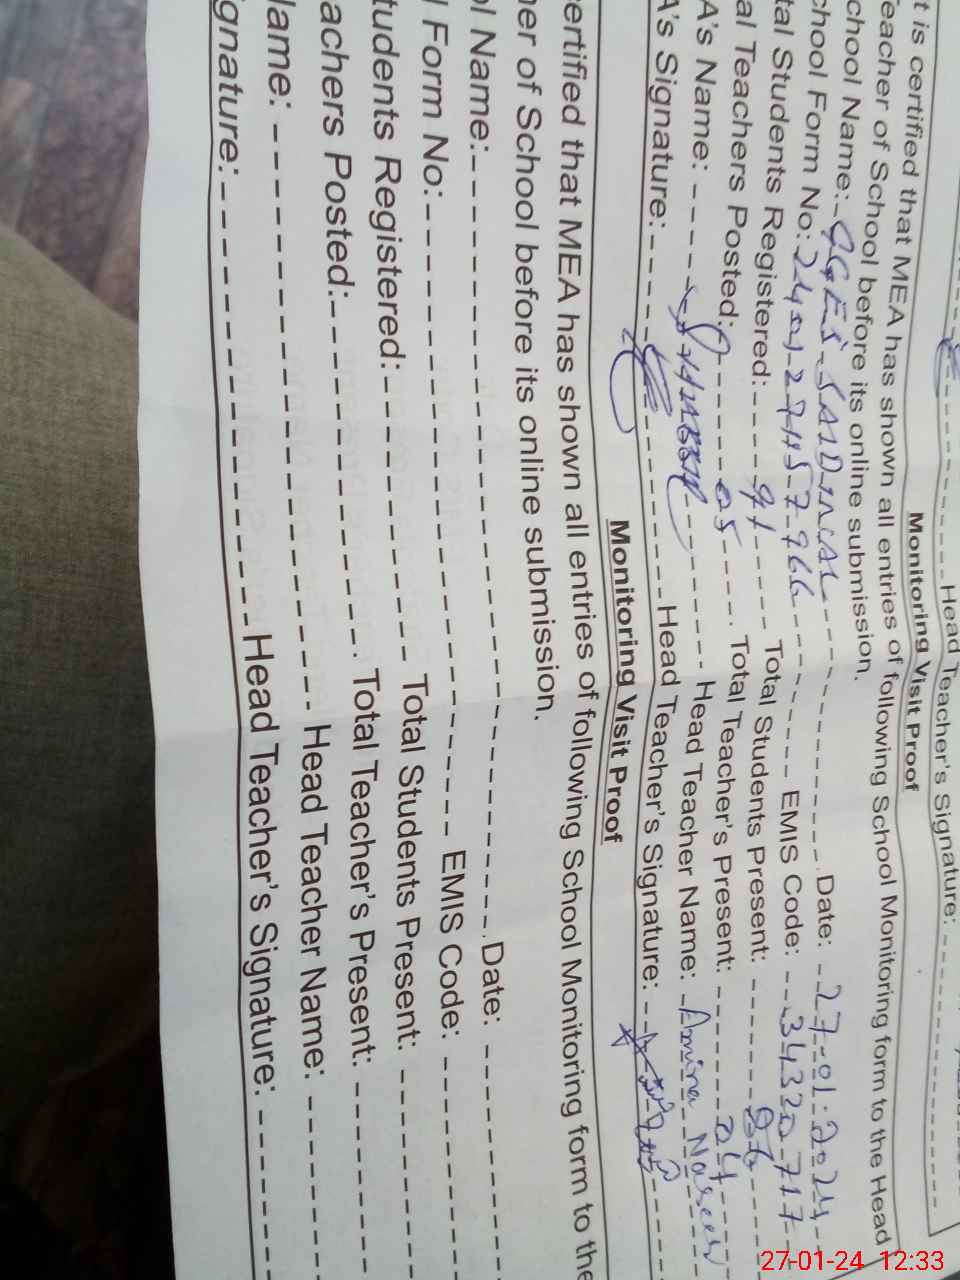 Head Teacher's Signature:
Monitoring Visit Proof
t is certified that MEA has shown all entries of following School Monitoring form to the Head
Teacher of School before its online submission.
chool Name: GGES SAIDNCAL Date: 27-01-2024
chool Form No: EMIS Code: 34320717
tal Students Registered: 91 Total Students Present: 86
al Teachers Posted: 05 Total Teacher's Present: 04
A's Name: SHABBIR Head Teacher Name: Amina Naseer
A's Signature: Head Teacher's Signature:
Monitoring Visit Proof
ertified that MEA has shown all entries of following School Monitoring form to the
her of School before its online submission.
ol Name: Date:
l Form No: EMIS Code:
tudents Registered: Total Students Present:
achers Posted: Total Teacher's Present:
Name: Head Teacher Name:
gnature: Head Teacher's Signature:
27-01-24 12:33